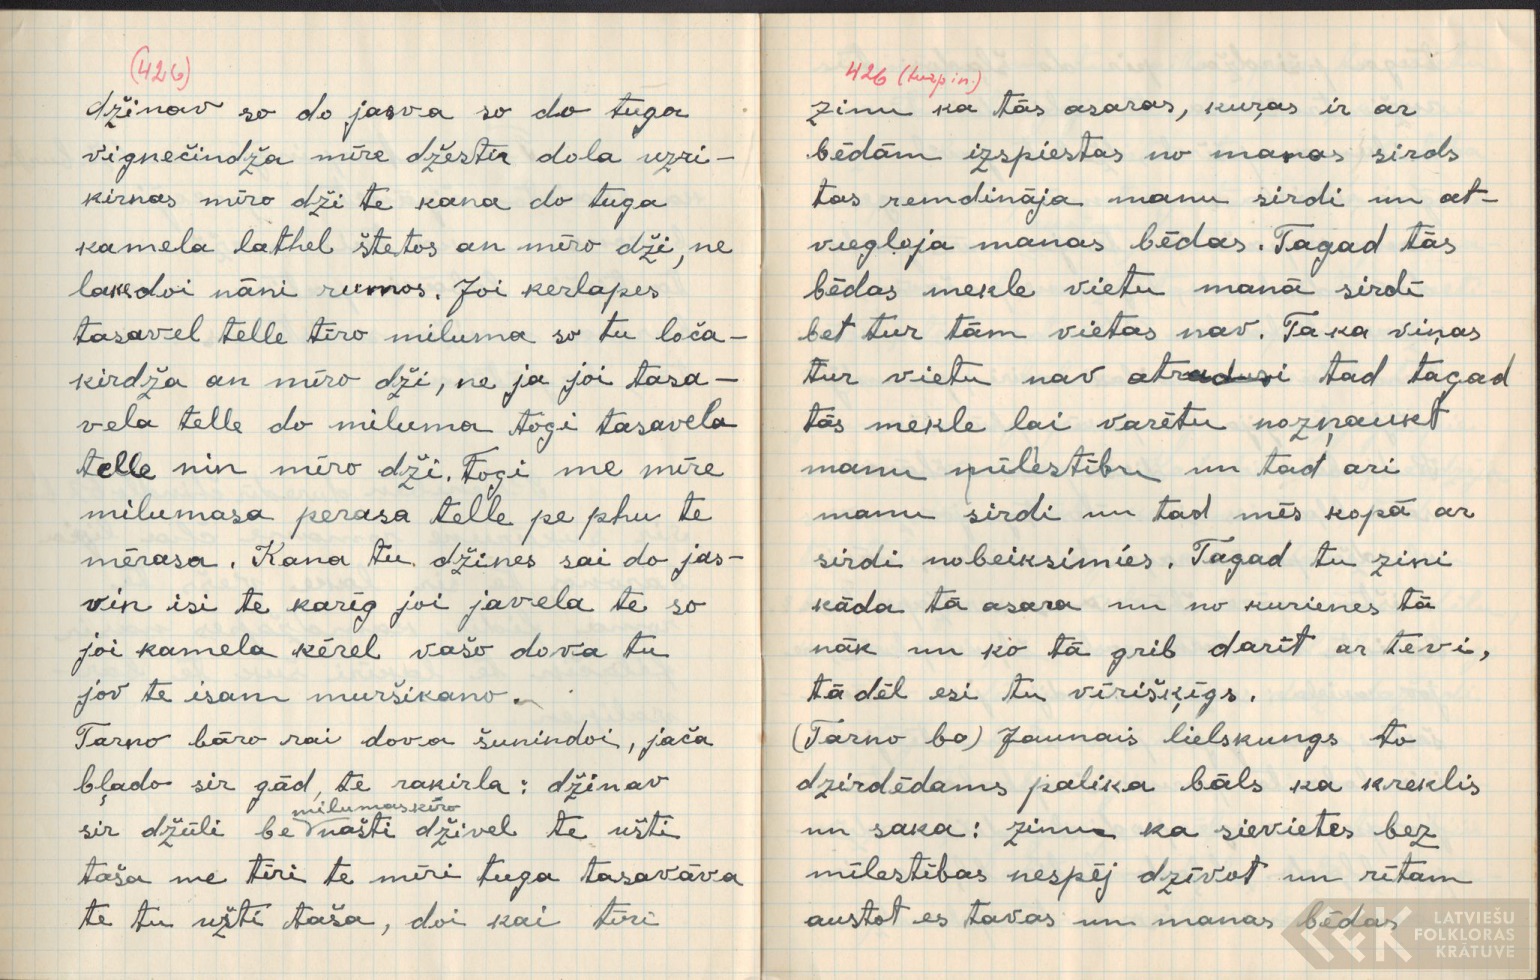 (426)
džinav so do jasva so do tuga
vignečindža mīre džestīr dola uzri-
kirnas mīro dži te kana do tuga
kamela lathel štetos an mīro dži, ne
lakedoi nāni rumos. Joi kerlapes
tasavel telle tīro miluma so tu loča-
kirdža an mīro dži, ne ja joi tasa-
vela telle do miluma togi tasavela
telle nin mīro dži. Togi me mīre
milumasa perasa telle pe phu te
mērasa. Kana tu džines sai do jas-
vin isi te karīg joi javela te so
joi kamela kērel vašo dova tu
jov te isam muršikano.
Tarno bāro rai dova šunindoi, jača
bļado sir gād, te rakirla: džinav
milumaskīro
sir džūli be našti dživel te ušti
taša me tīri te mīri tuga tasavāva
te tu ušti taša, doi kai tīri
426 (turpin.)
zinu ka tās asaras, kuŗas ir ar
bēdām izspiestas no manas sirds
tas remdināja manu sirdi un at-
viegloja manas bēdas. Tagad tās
bēdas mekle vietu manā sirdī
bet tur tām vietas nav. Ta ka viņas
tur vietu nav atradusi tad tagad
tās mekle lai varētu nozņaukt
manu mīlestību un tad ari
manu sirdi un tad mēs kopā ar
sirdi nobeiksimies. Tagad tu zini
kāda tā asara un no kurienes tā
nāk un ko tā grib darīt ar tevi,
tā dēl esi tu vīrišķīgs.
(Tarno bo) Jaunais lielskungs to
dzirdēdams palika bāls ka kreklis
un saka: zinu ka sievietes bez
mīlestības nespēj dzīvot un rītam
austot es tavas un manas bēdas
LATVIEŠU
FOLKLORAS
KRĀTUVE